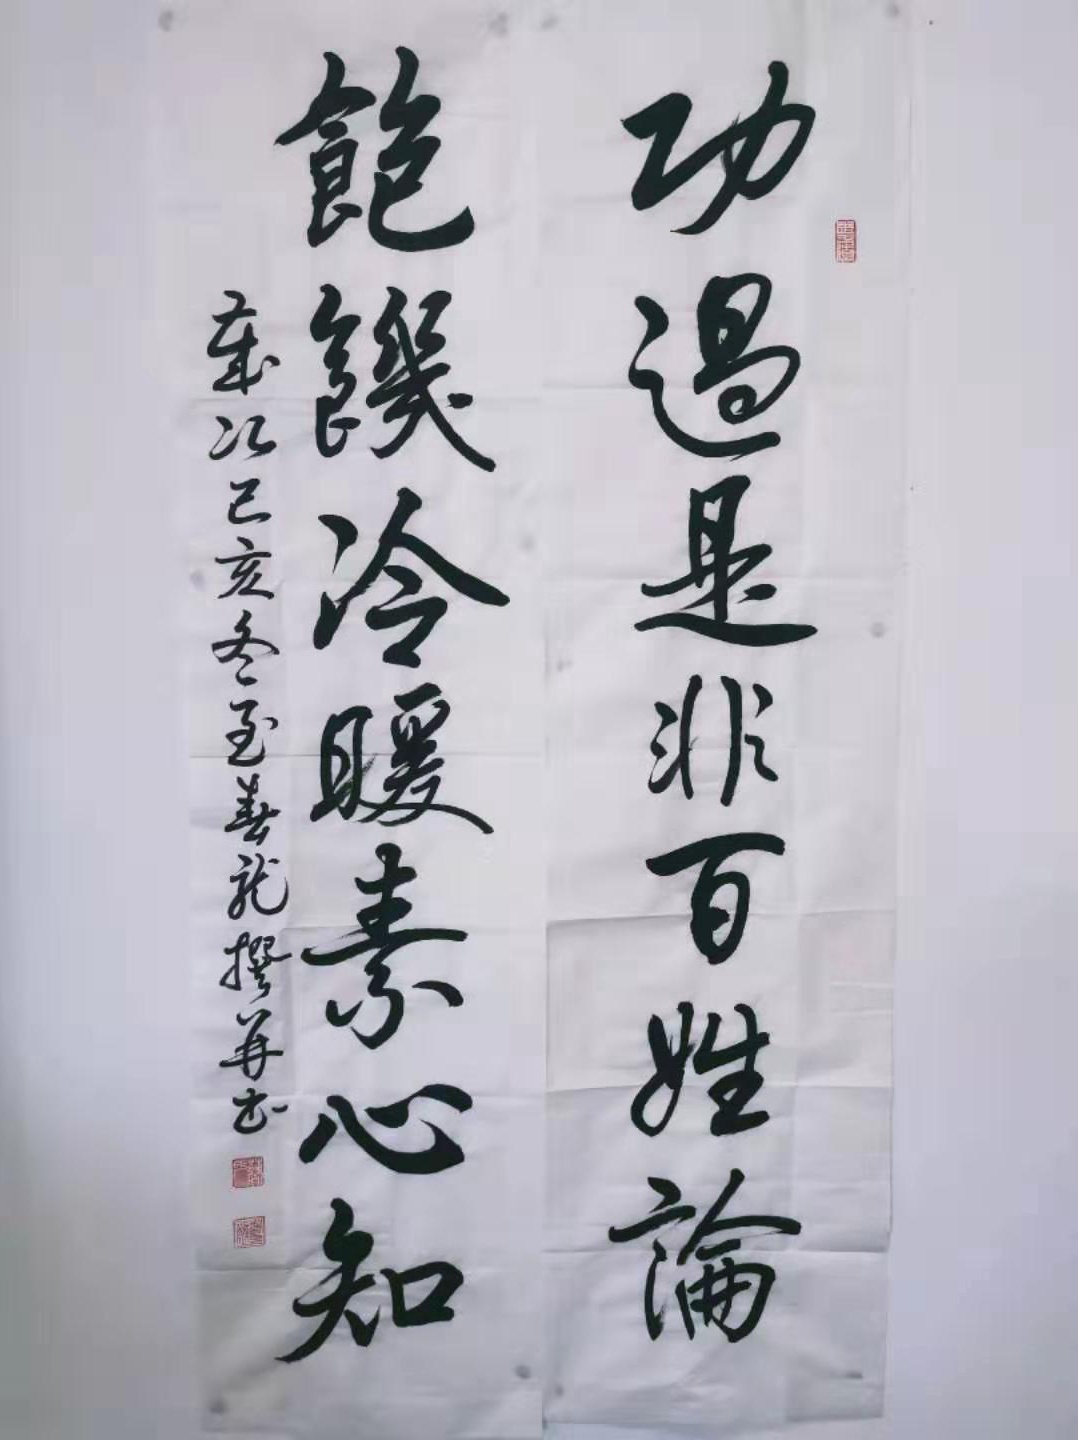 功過是非百姓論
飽饑冷暖素心知
歲次己亥冬至春龍撰并书